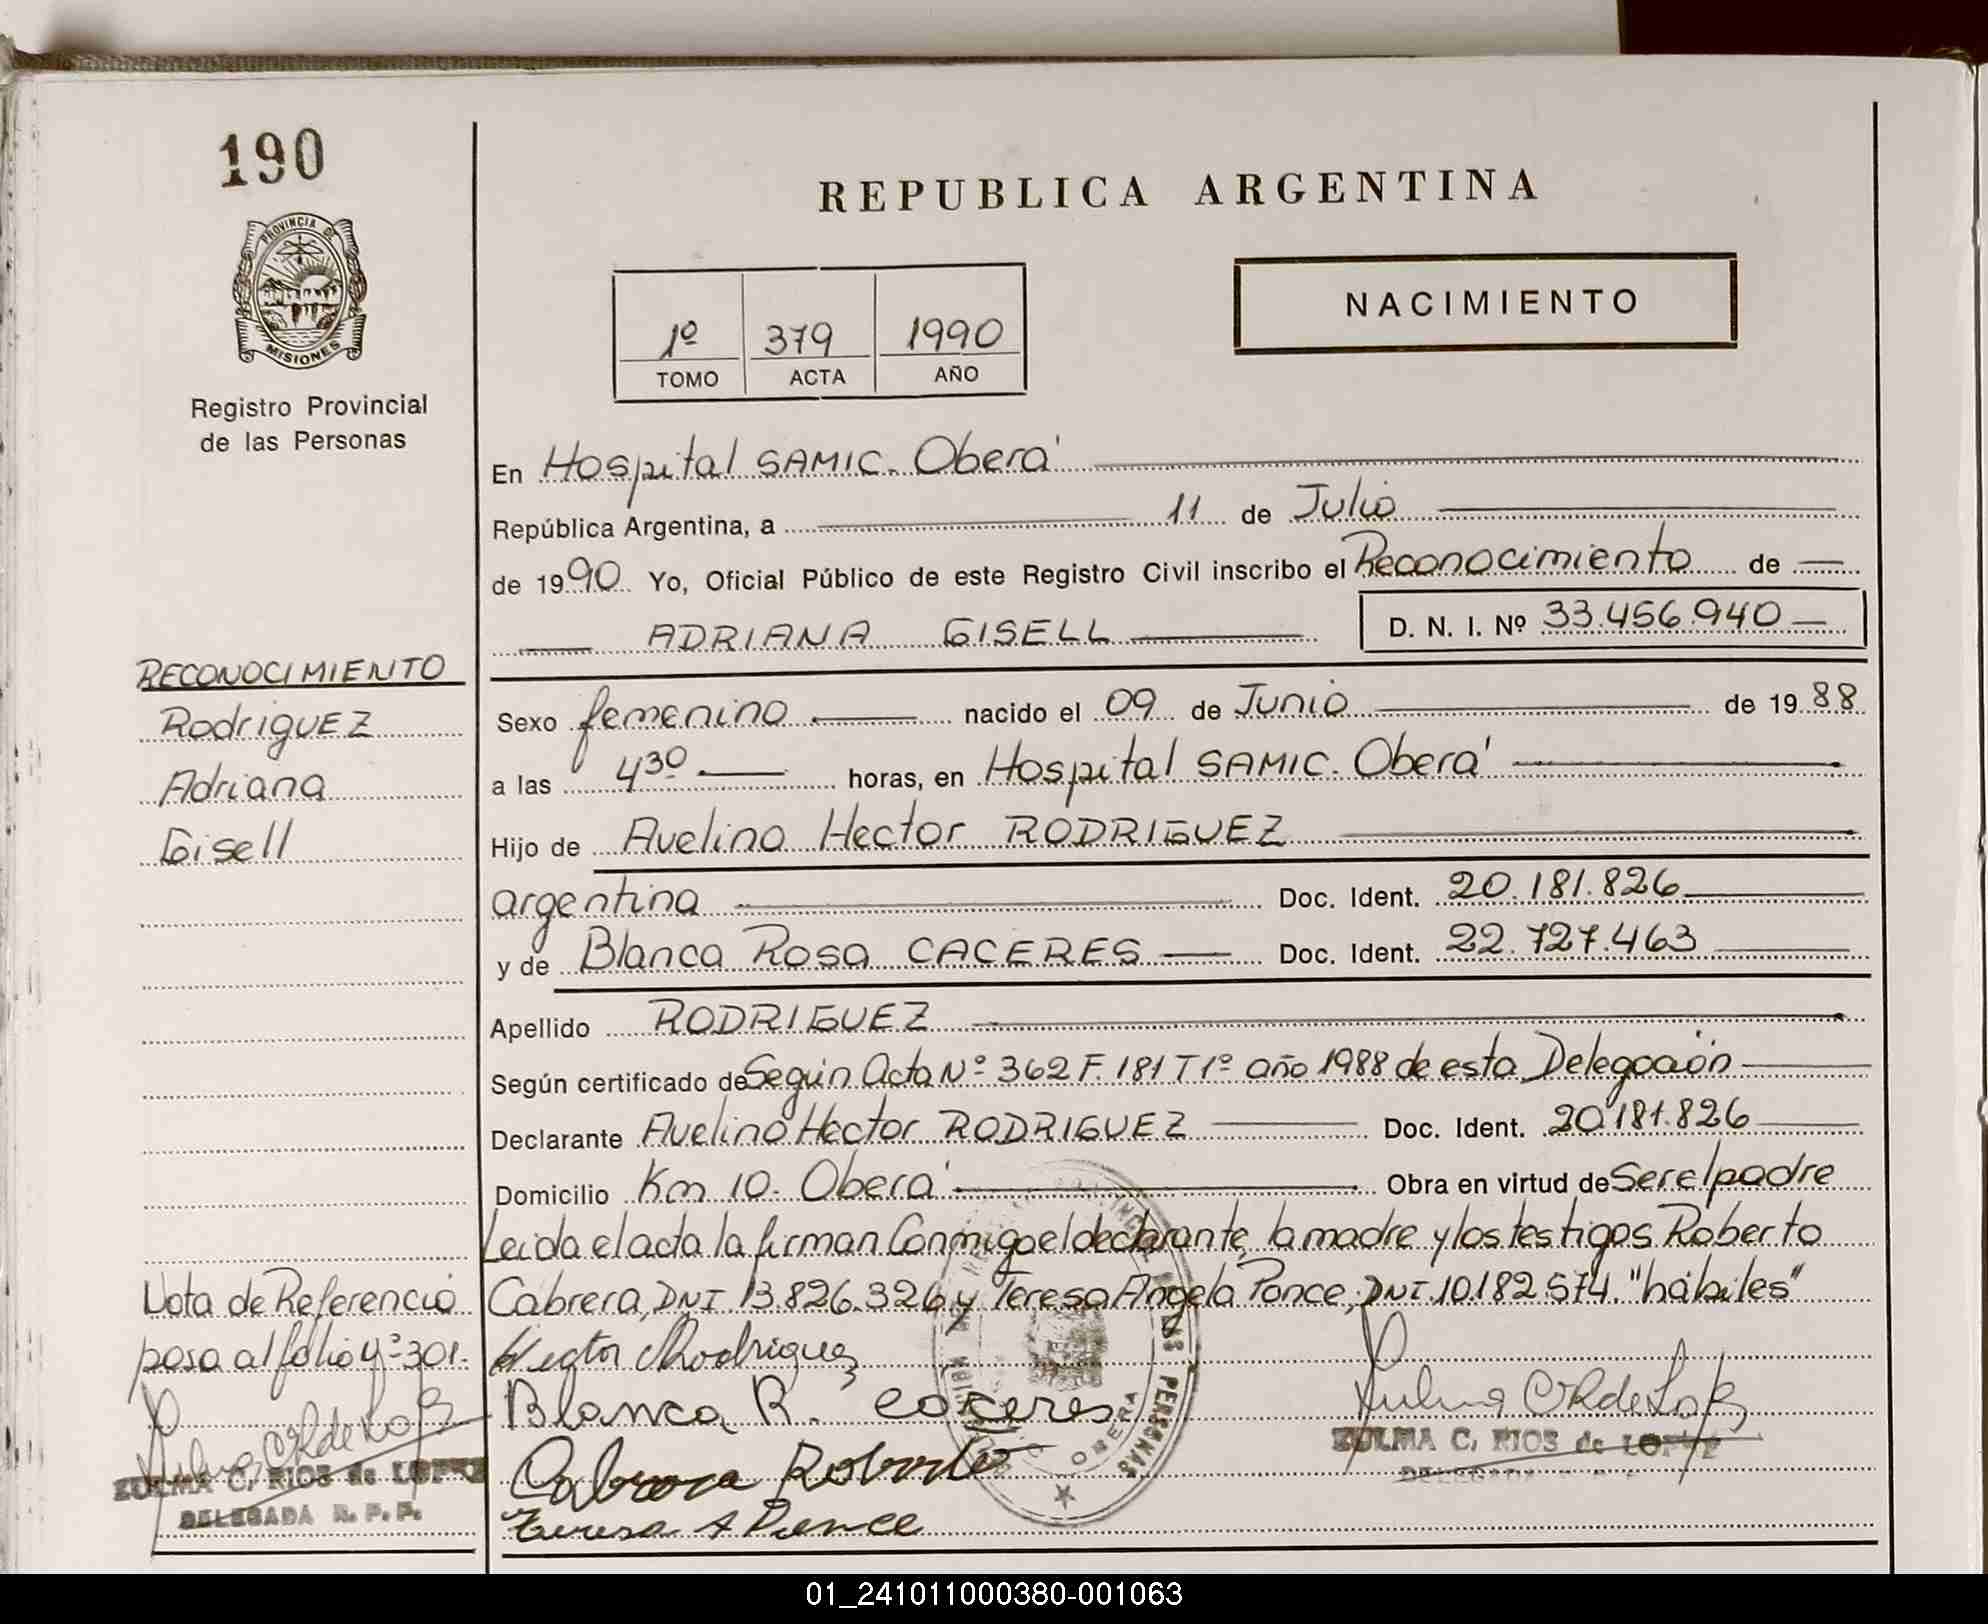 190
REPUBLICA ARGENTINA
PROVINCIA DE
MISIONES
Registro Provincial
de las Personas
1º 379 1990
TOMO ACTA AÑO
NACIMIENTO
En Hospital SAMIC. Oberá
República Argentina, a 11 de Julio
de 1990 Yo, Oficial Público de este Registro Civil inscribo el Reconocimiento de
ADRIANA GISELL D. N. I. Nº 33.456.940
RECONOCIMIENTO
Rodriguez
Adriana
Gisell
Sexo femenino nacido el 09 de Junio de 1988
a las 4³⁰ horas, en Hospital SAMIC. Oberá
Hijo de Avelino Hector RODRIGUEZ
argentina Doc. Ident. 20.181.826
y de Blanca Rosa CACERES Doc. Ident. 22.727.463
Apellido RODRIGUEZ
Según certificado de Según Acta Nº 362 F. 181 T 1º año 1988 de esta Delegación
Declarante Avelino Hector RODRIGUEZ Doc. Ident. 20.181.826
Domicilio Km 10. Oberá Obra en virtud de Ser el padre
Leida el acta la firman Conmigo el declarante, la madre y los testigos Roberto
Cabrera, DNI 13.826.326 y Teresa Angela Ponce, DNI. 10.182.574. "hábiles"
Nota de Referencia
pasa al folio Nº 301.
Hector Rodriguez
Blanca R. caceres
Cabrera Roberto
Teresa A Ponce
ZULMA C. RIOS de LOPEZ
DELEGADA R. P. P.
ZULMA C. RIOS de LOPEZ
DELEGADA
PERSONAS
OBERA
01_241011000380-001063